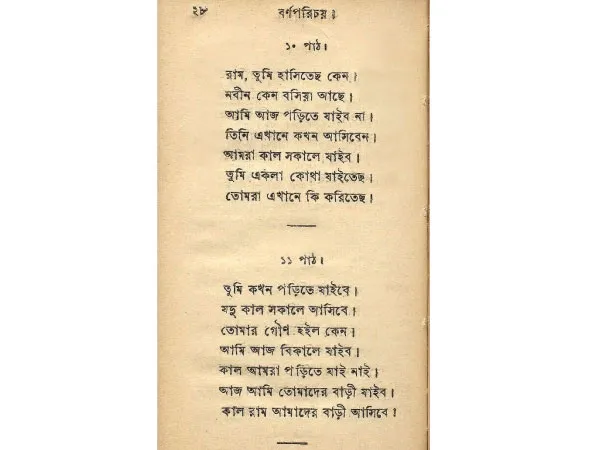 ২৮ বর্ণপরিচয়।
১০ পাঠ।
রাম, তুমি হাসিতেছ কেন।
নবীন কেন বসিয়া আছে।
আমি আজ পড়িতে যাইব না।
তিনি এখানে কখন আসিবেন।
আমরা কাল সকালে যাইব।
তুমি একলা কোথা যাইতেছ।
তোমরা এখানে কি করিতেছ।
১১ পাঠ।
তুমি কখন পড়িতে যাইবে।
যদু কাল সকালে আসিবে।
তোমার গৌণ হইল কেন।
আমি আজ বিকালে যাইব।
কাল আমরা পড়িতে যাই নাই।
আজ আমি তোমাদের বাড়ী যাইব।
কাল রাম আমাদের বাড়ী আসিবে।